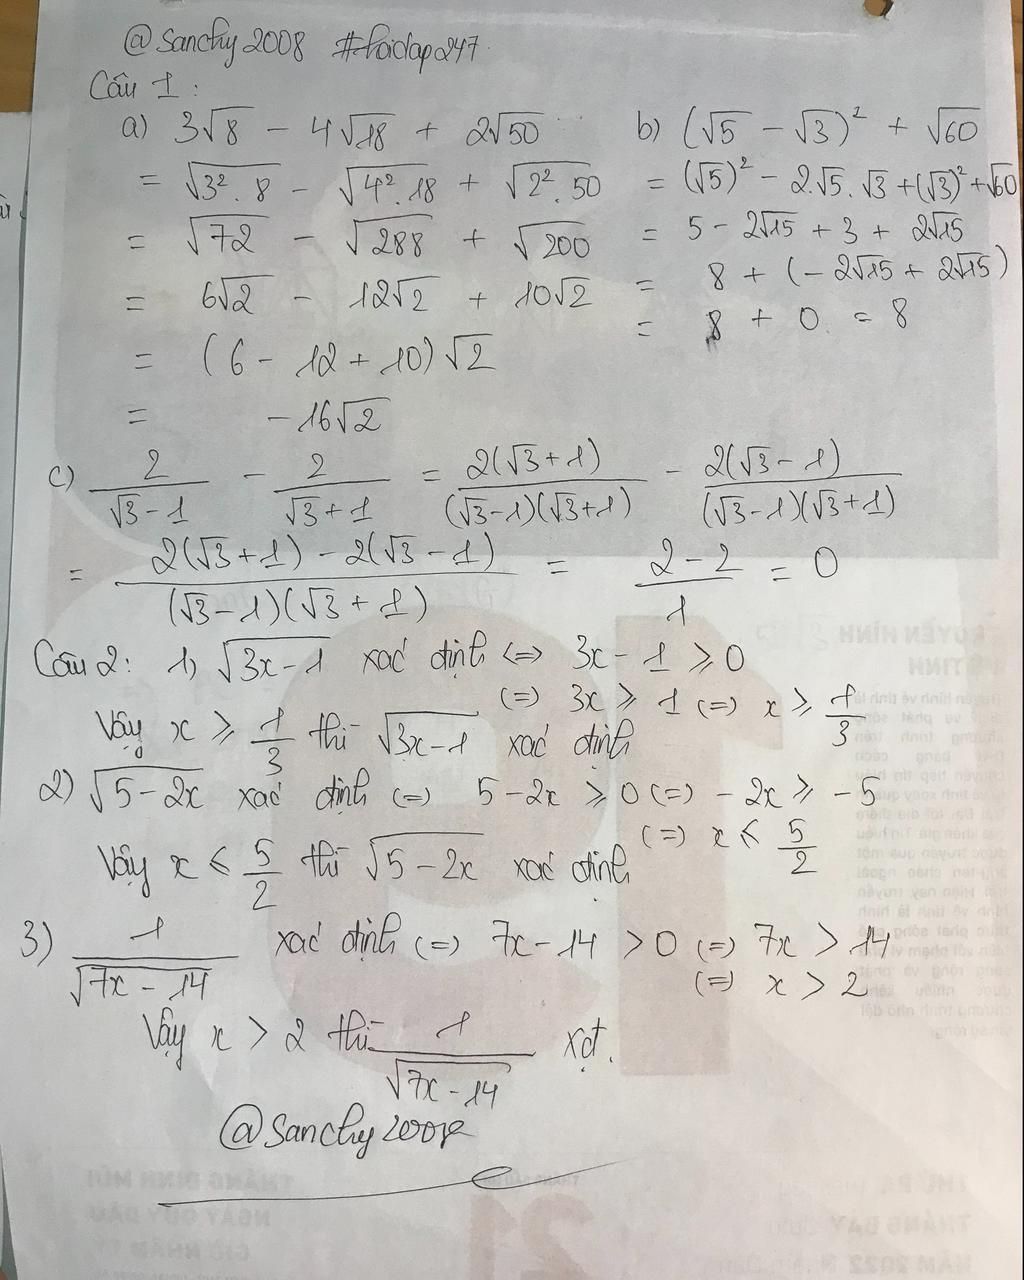 @sanchy2008 #hoidap247
Câu 1:
a) 3√8 - 4√18 + 2√50
= √3².8 - √4².18 + √2².50
= √72 - √288 + √200
= 6√2 - 12√2 + 10√2
= (6 - 12 + 10)√2
= -16√2
b) (√5 - √3)² + √60
= (√5)² - 2.√5.√3 + (√3)² + √60
= 5 - 2√15 + 3 + 2√15
= 8 + (-2√15 + 2√15)
= 8 + 0 = 8
c) 2/(√3-1) - 2/(√3+1) = 2(√3+1)/(√3-1)(√3+1) - 2(√3-1)/(√3-1)(√3+1)
= (2(√3+1) - 2(√3-1))/(√3-1)(√3+1) = (2-2)/1 = 0
Câu 2: 1) √3x-1 xác định <=> 3x - 1 ≥ 0
<=> 3x ≥ 1 <=> x ≥ 1/3
Vậy x ≥ 1/3 thì √3x-1 xác định
2) √5-2x xác định <=> 5-2x ≥ 0 <=> -2x ≥ -5
<=> x ≤ 5/2
Vậy x ≤ 5/2 thì √5-2x xác định
3) 1/√7x-14 xác định <=> 7x-14 > 0 <=> 7x > 14
<=> x > 2
Vậy x > 2 thì 1/√7x-14 xđ.
@sanchy2008